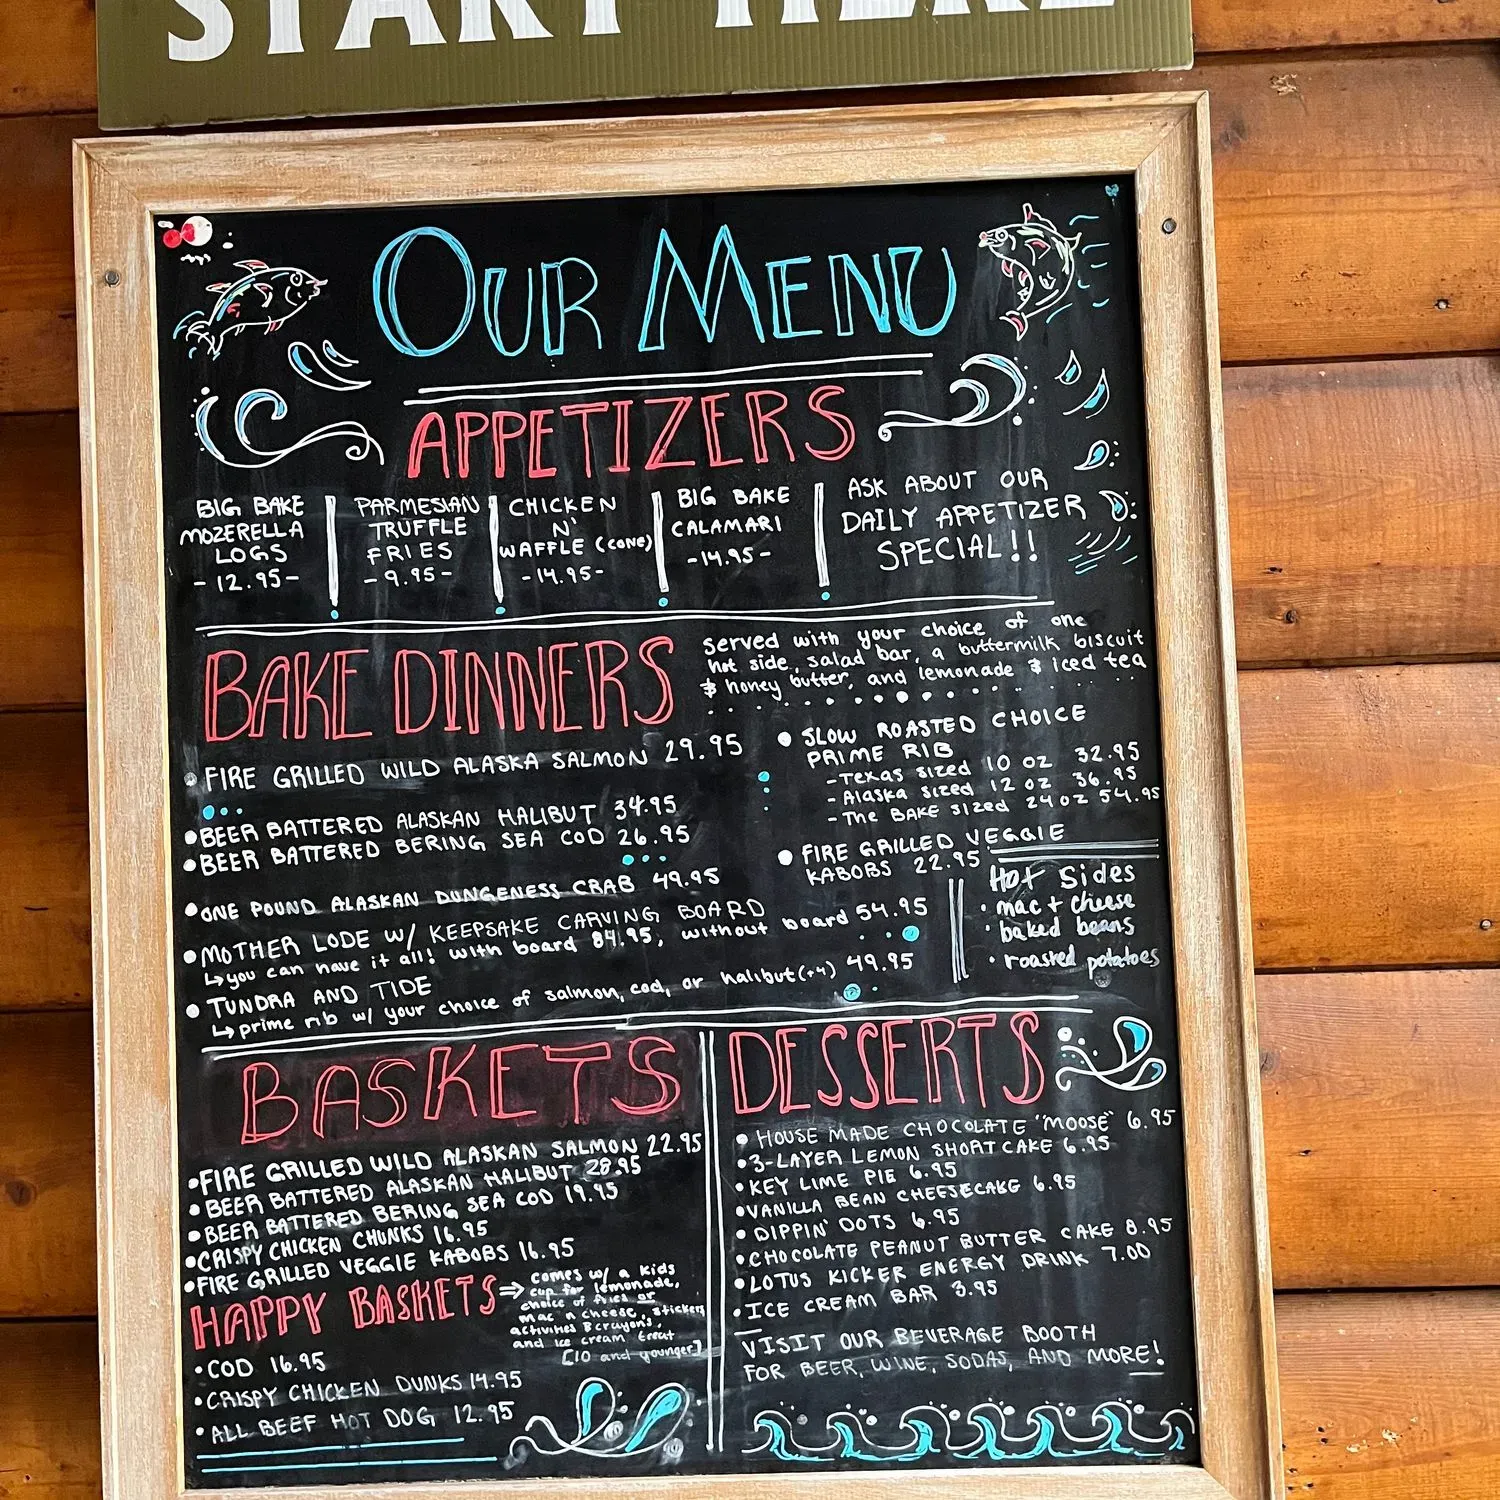 START HERE
OUR MENU
APPETIZERS
BIG BAKE
MOZERELLA
LOGS
- 12.95 -
PARMESIAN
TRUFFLE
FRIES
- 9.95 -
CHICKEN
N'
WAFFLE (CONE)
- 14.95 -
BIG BAKE
CALAMARI
- 14.95 -
ASK ABOUT OUR
DAILY APPETIZER
SPECIAL!!
BAKE DINNERS
served with your choice of one
hot side, salad bar, a buttermilk biscuit
& honey butter, and lemonade & iced tea
• FIRE GRILLED WILD ALASKA SALMON 29.95
• BEER BATTERED ALASKAN HALIBUT 34.95
• BEER BATTERED BERING SEA COD 26.95
• ONE POUND ALASKAN DUNGENESS CRAB 49.95
• MOTHER LODE W/ KEEPSAKE CARVING BOARD
↳ you can have it all! with board 84.95, without board 54.95
• TUNDRA AND TIDE
↳ prime rib w/ your choice of salmon, cod, or halibut (+4) 49.95
• SLOW ROASTED CHOICE
PRIME RIB
- Texas sized 10 oz 32.95
- Alaska sized 12 oz 36.95
- The BAKE sized 24 oz 54.95
• FIRE GRILLED VEGGIE
KABOBS 22.95
Hot Sides
• mac + cheese
• baked beans
• roasted potatoes
BASKETS
• FIRE GRILLED WILD ALASKAN SALMON 22.95
• BEER BATTERED ALASKAN HALIBUT 28.95
• BEER BATTERED BERING SEA COD 19.95
• CRISPY CHICKEN CHUNKS 16.95
• FIRE GRILLED VEGGIE KABOBS 16.95
HAPPY BASKETS ⇒
comes w/ a kids
cup for lemonade,
choice of fries or
mac n cheese, stickers
activities & crayons,
and ice cream treat
[10 and younger]
• COD 16.95
• CRISPY CHICKEN DUNKS 14.95
• ALL BEEF HOT DOG 12.95
DESSERTS
• HOUSE MADE CHOCOLATE "MOOSE" 6.95
• 3-LAYER LEMON SHORTCAKE 6.95
• KEY LIME PIE 6.95
• VANILLA BEAN CHEESECAKE 6.95
• DIPPIN' DOTS 6.95
• CHOCOLATE PEANUT BUTTER CAKE 8.95
• LOTUS KICKER ENERGY DRINK 7.00
• ICE CREAM BAR 3.95
VISIT OUR BEVERAGE BOOTH
FOR BEER, WINE, SODAS, AND MORE!